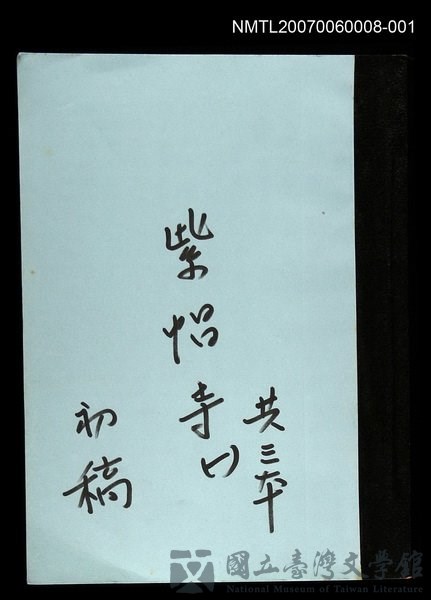 NMTL20070060008-001
共三本
紫怊寺(1)
初稿
國立臺灣文學館
National Museum of Taiwan Literature